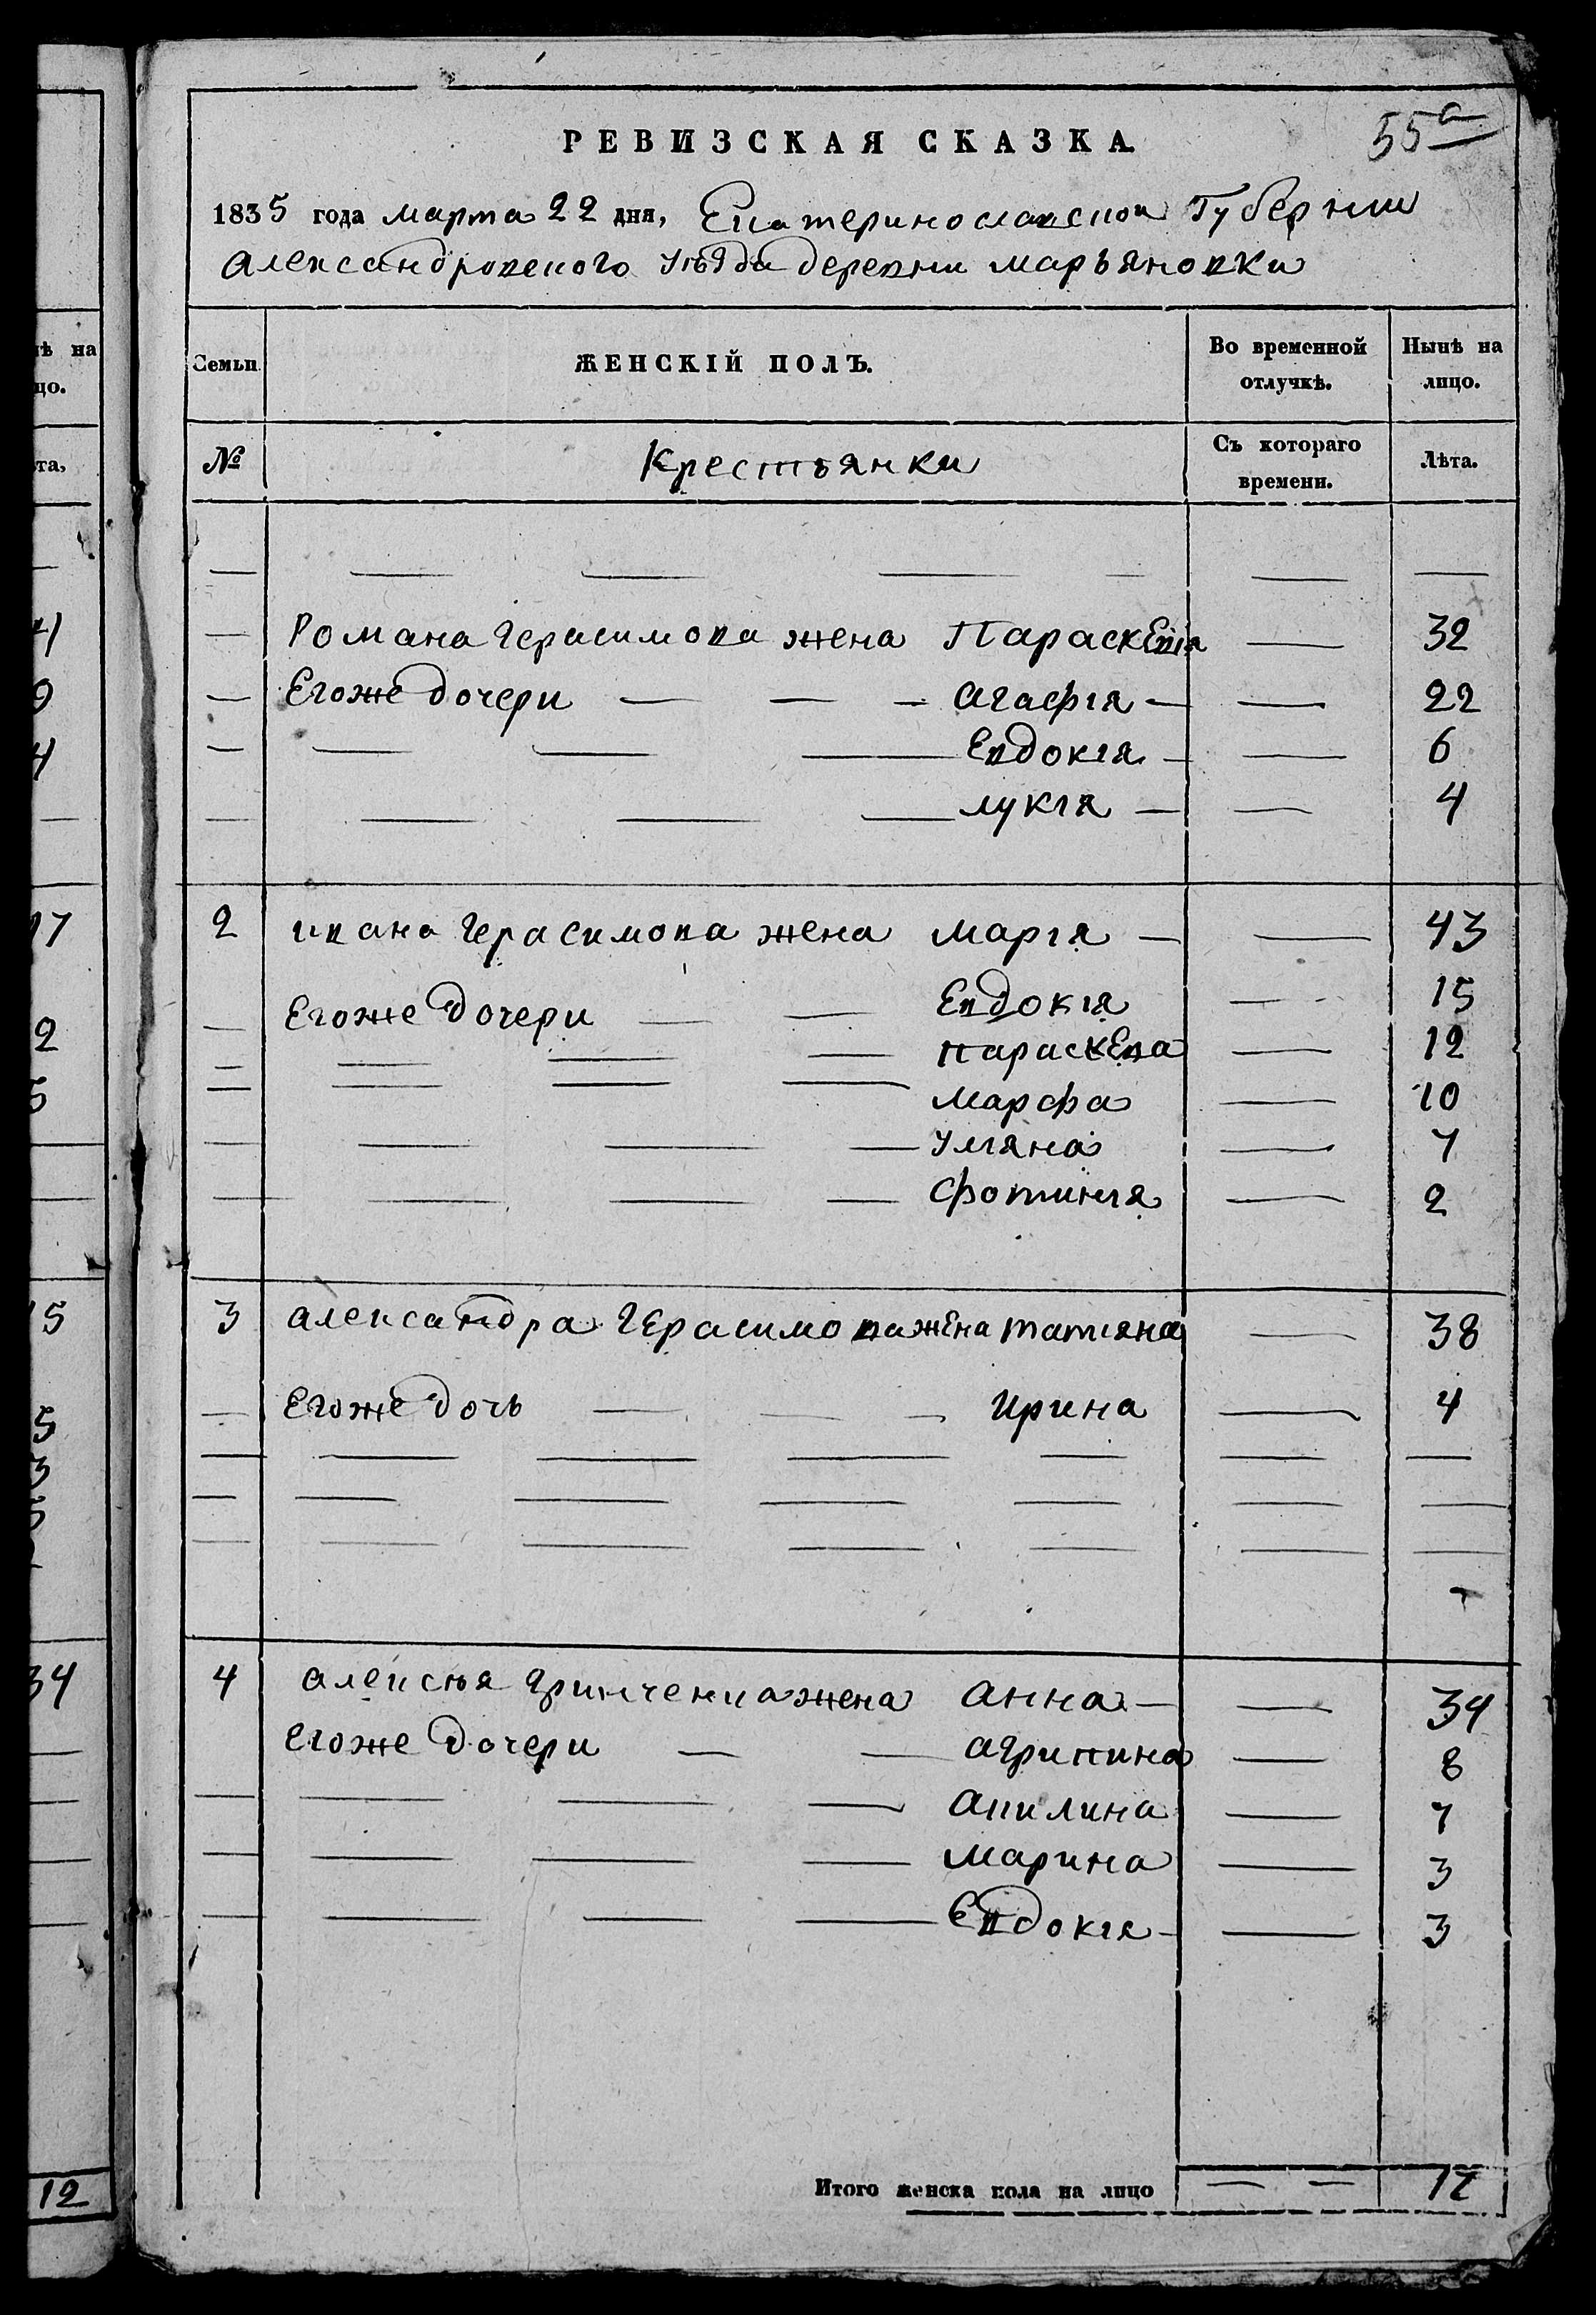 РЕВИЗСКАЯ СКАЗКА.
55а
1835 года марта 22 дня, Екатеринославской Губернии
Александровского уѣзда деревни Марьяновки
Семьи.
ЖЕНСКІЙ ПОЛЪ.
Во временной отлучкѣ.
Нынѣ на лицо.
№
Крестьянки
Съ котораго времени.
Лѣта.
— — — — — — —
— Романа Герасимова жена Параскевія — 32
— Егоже дочери — — — Агафія — — 22
— — — — Евдокія — — 6
— — — — Лукія — — 4
2 Ивана Герасимова жена Марія — — 43
— Егоже дочери — — Евдокія — 15
— — — — Параскева — 12
— — — — Марфа — 10
— — — — Уліяна — 7
— — — — Фотинія — 2
3 Александра Герасимова жена Татіяна — 38
— Егоже дочь — — — Ирина — 4
— — — — — — —
— — — — — — —
— — — — — — —
4 Алексѣя Гринченка жена Анна — — 34
Егоже дочери — — Агрипина — 8
— — — — Акилина — 7
— — — — Марина — 3
— — — — Евдокія — — 3
Итого женска пола на лицо — — 17
ѣ на
цо.
та,
4
9
4
17
2
5
15
5
3
5
34
12